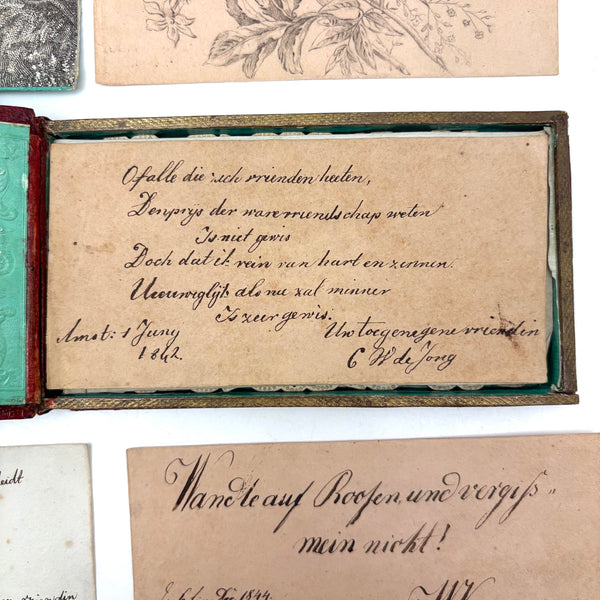 Of alle die zich vrienden heeten,
Den prijs der ware vriendschap weten
Is niet gewis
Doch dat ik rein van hart en zinnen.
U eeuwiglijk als nu zal minnen
Is zeer gewis.
Amst: 1 Juny
1842.
Uw toegenegene vriendin
C W de Jong
eidt
vriendin
Wandle auf Roosen, und vergiss-
mein nicht!
1844.